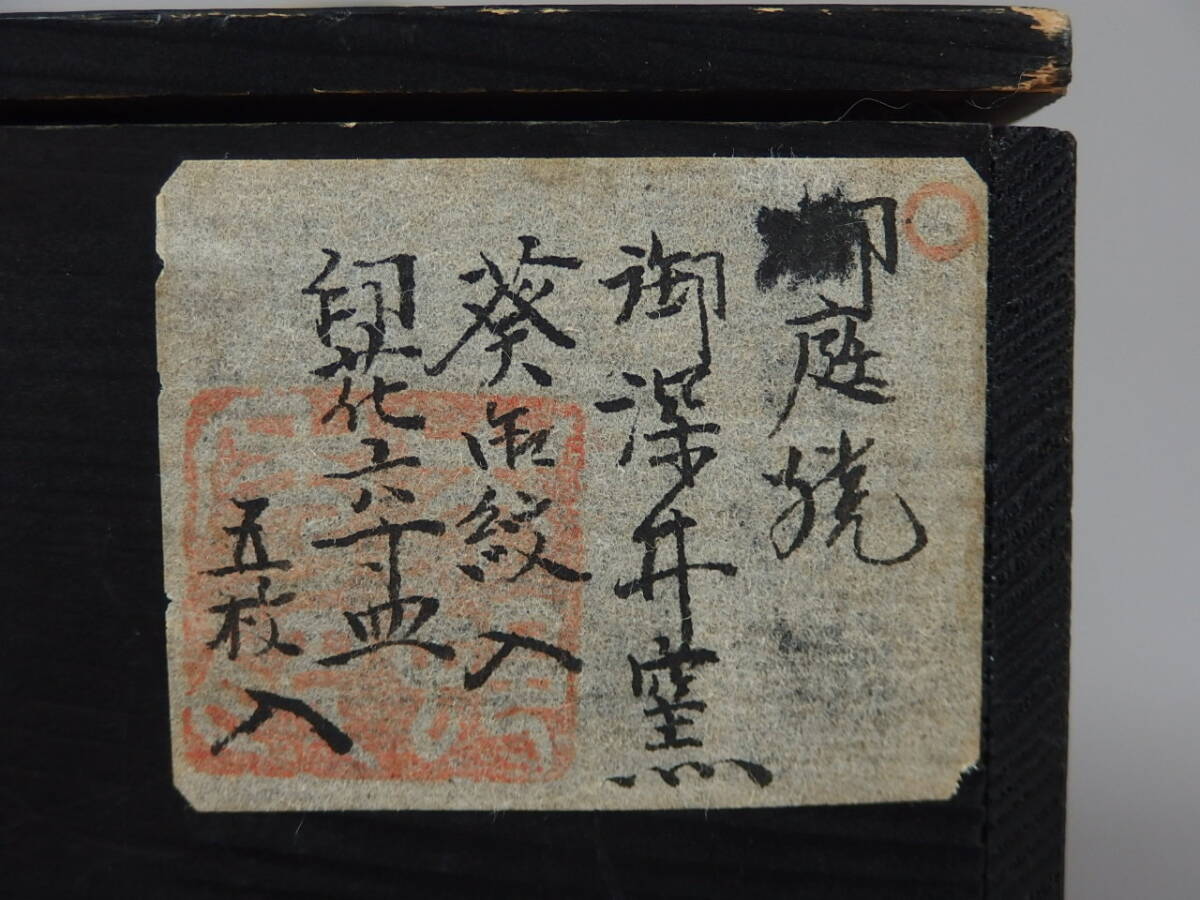 御庭焼
御深井窯
葵御紋入
印花六寸皿
五枚入